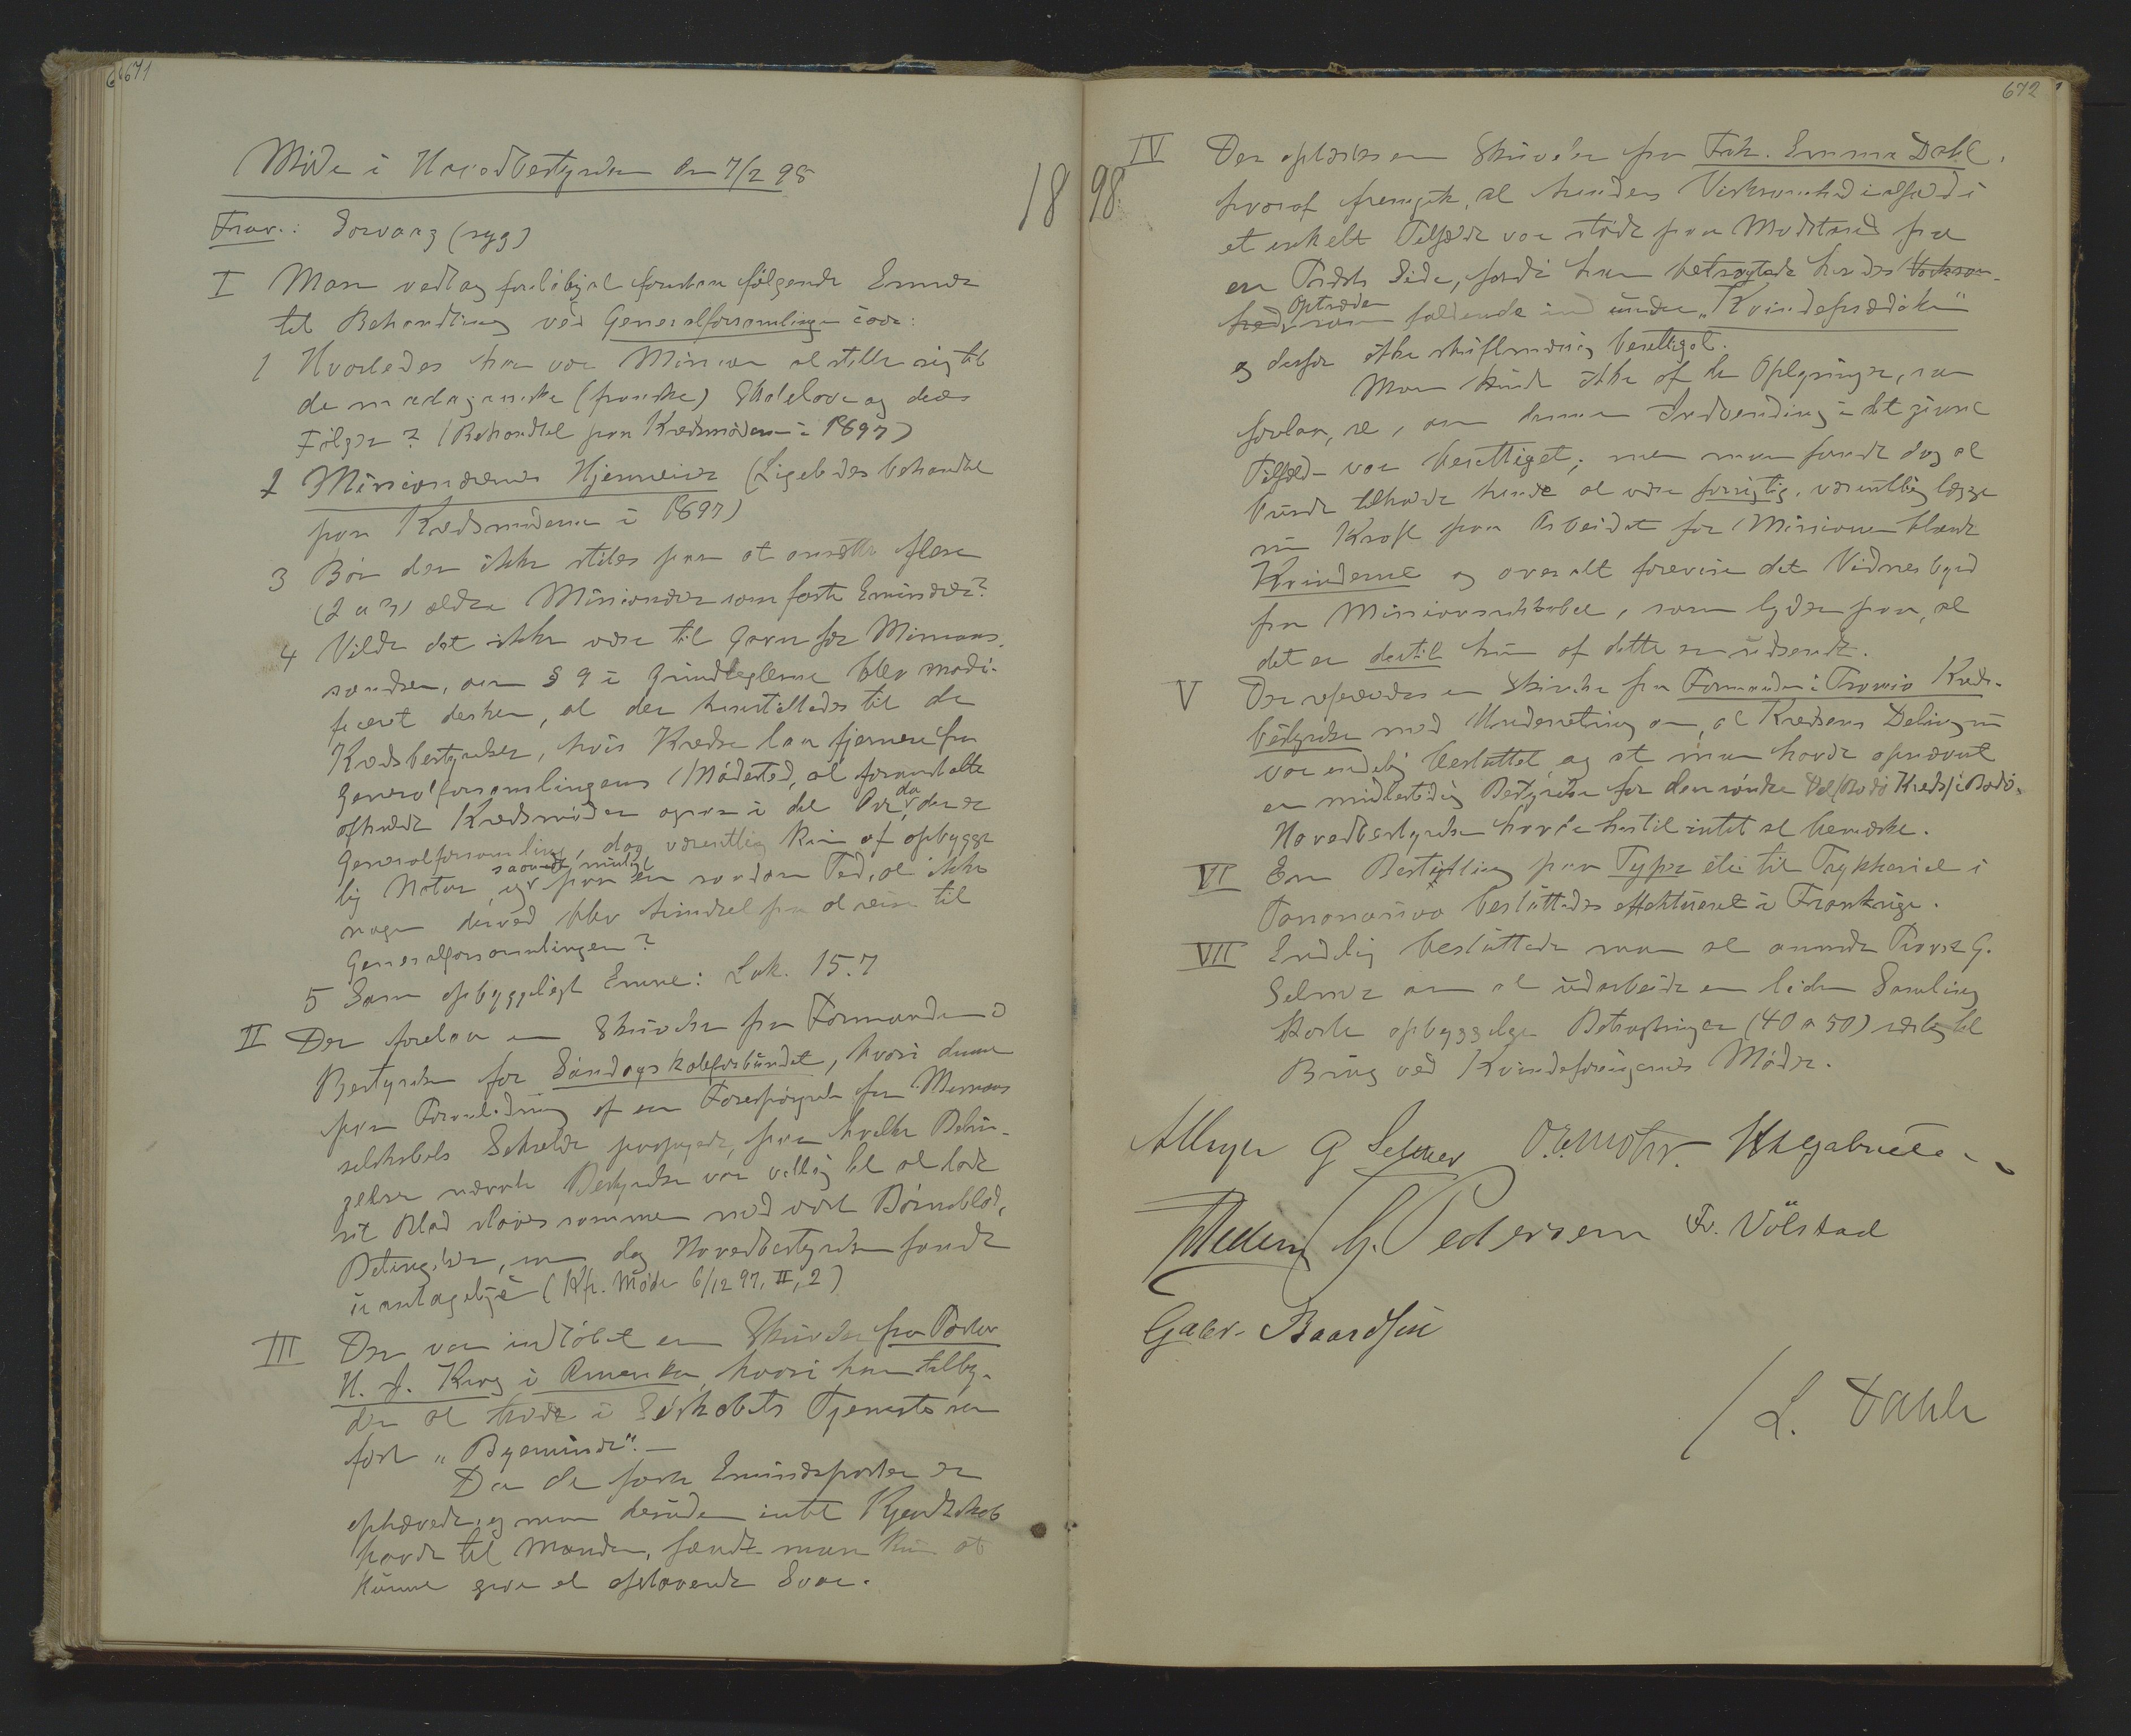 671
Møde i Hovedbestyrelsen den 7/2 98
Frav.: Sorvaag (syg)
18
I Man vedtog foreløbig at foreslaa følgende Emner
til Behandling ved Generalforsamlingen iaar:
1 Hvorledes har vor Mission at stille sig til
de madagassiske (franske) Skolelove og deres
Følger? (Behandlet paa Kredsmøderne i 1897)
2 Missionærernes Hjemreiser (Ligeledes behandlet
paa Kredsmøderne i 1897)
3 Bør der ikke stiles paa at ansætte flere
(2 a 3) ældre Missionærer som faste Emissærer?
4 Vilde det ikke være til Gavn for Missions-
sagen, om § 9 i Grundreglerne blev modi-
ficeret derhen, at der henstilledes til de
Kredsbestyrelser, hvis Kredse laa fjernere fra
Generalforsamlingens Mødested, at foranstalte
afholdt Kredsmøder ogsaa i det Aar, da der er
Generalforsamling, dog væsentlig kun af opbygge-
lig Natur, og saavidt muligt paa en saadan Tid, at ikke
nogen derved blev hindret fra at reise til
Generalforsamlingen?
5 Som opbyggeligt Emne: Luk. 15.7
II Der forelaa en Skrivelse fra Formanden i
Bestyrelsen for Søndagsskoleforbundet, hvori denne
paa Foranledning af en Forespørgsel fra Missions
selskabets Sekretær paapegede, paa hvilke Betin-
gelser nævnte Bestyrelse var villig til at lade
sit Blad slaaes sammen med vort Børneblad,
Betingelser, som dog Hovedbestyrelsen fandt
uantagelige (Kfr. Møde 6/12 97, II, 2)
III Der var indløbet en Skrivelse fra Pastor
H. J. Krog i Amerika, hvori han tilby-
der at træde i Selskabets Tjeneste som
fast "Byemissær".
Da de faste Emissærposter er
ophævede, og man desuden intet Kjendskab
havde til Manden, fandt man kun at
kunne give et afslaaende Svar.
672
98.
IV Der oplæstes en Skrivelse fra Frk. Emma Dahl,
hvoraf fremgik, at hendes Virksomhed ialfald i
et enkelt Tilfælde var stødt paa Modstand fra
en Præsts Side, fordi han betragtede hendes Virksom-
hed Optræden som faldende ind under "Kvindeprædiken"
og derfor ikke skriftmæssig berettiget.
Man kunde ikke af de Oplysninger, som
forlaa, se, om denne Indvending i det givne
Tilfælde var berettiget; men man fandt dog at
burde tilholde hende at være forsigtig, væsentlig lægge
sin Kraft paa Arbeidet for Missionen blandt
Kvinderne og overalt forevise det Vidnesbyrd
fra Missionsselskabet, som lyder paa, at
det er dertil hun af dette er udsendt.
V Der refereredes en Skrivelse fra Formanden i Tromsø Kreds-
bestyrelse med Underretning om, at Kredsens Deling nu
var endelig besluttet og at man havde opnævnt
en midlertidig Bestyrelse for den søndre Del (Bodø Kreds) i Bodø.
Hovedbestyrelsen havde hertil intet at bemærke.
VI En Bestilling paa Typer etc til Trykkeriet i
Tananarivo besluttedes effektueret i Frankrige.
VII Endelig besluttede man at anmode Provst G.
Selmer om at udarbeide en liden Samling
korte opbyggelige Betragtninger (40 a 50) særlig til
Brug ved Kvindeforeningernes Møder.
G Selmer O. E. Mohr.
G. Pedersen Fr. Völstad
Gabr. Baardsen
/ L. Dahle